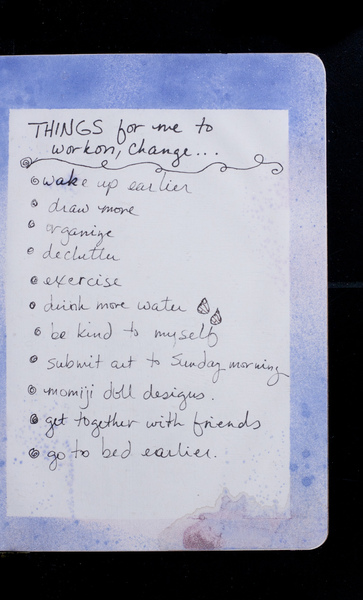 THINGS for me to
work on, change...
wake up earlier
draw more
organize
declutter
exercise
drink more water
be kind to myself
submit art to Sunday morning
momiji doll designs.
get together with friends
go to bed earlier.